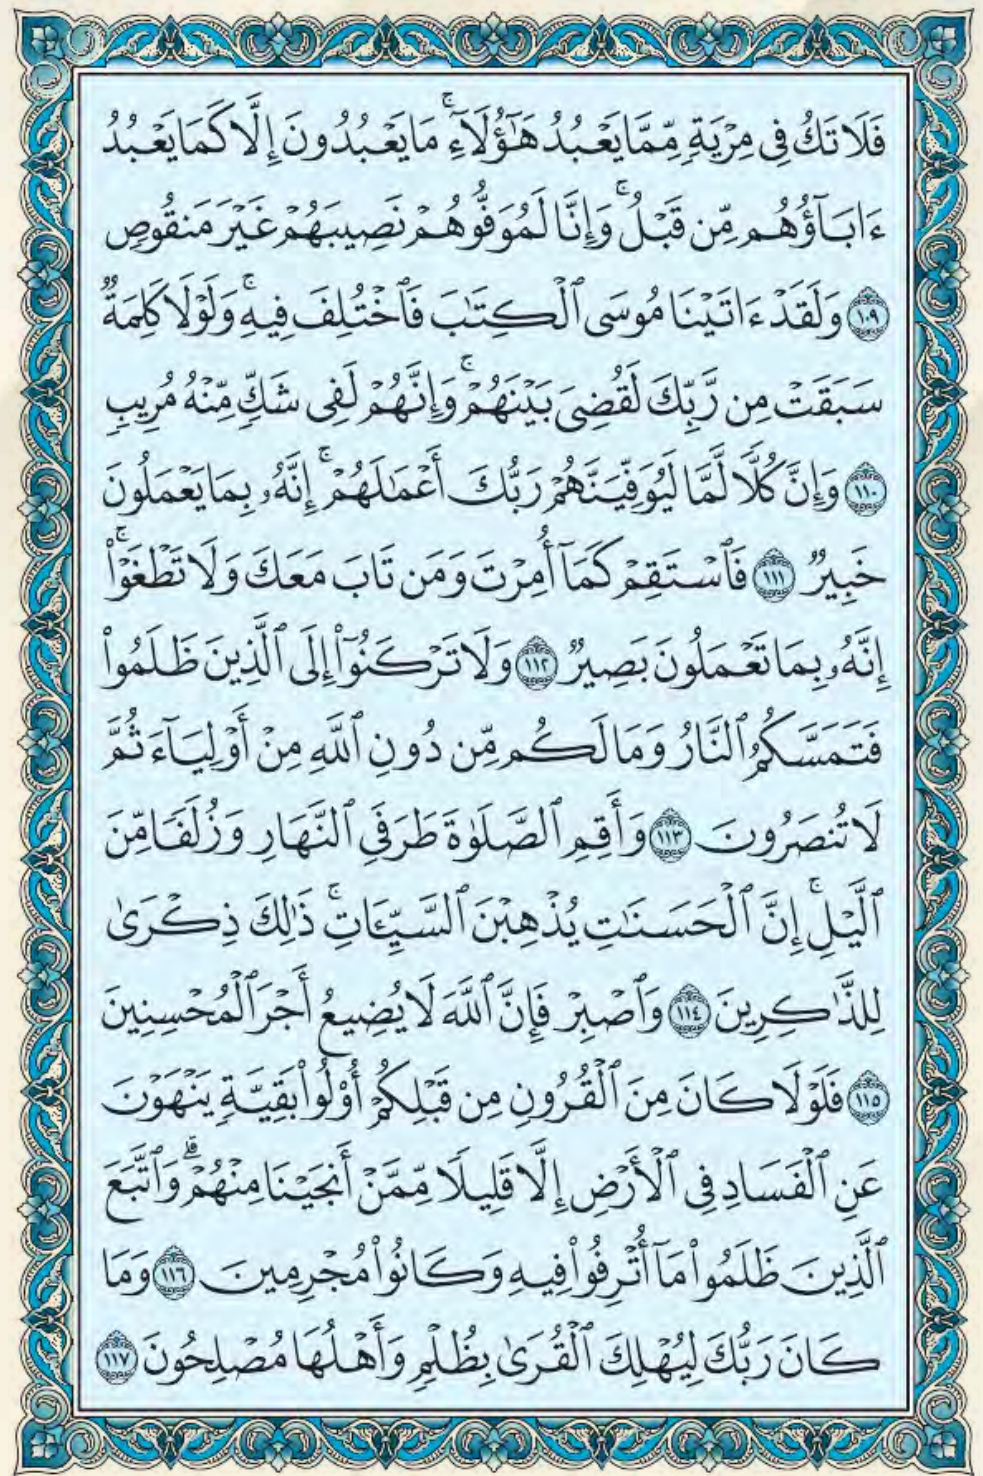 فَلَا تَكُ فِي مِرْيَةٍ مِّمَّا يَعْبُدُ هَٰٓؤُلَآءِۚ مَا يَعْبُدُونَ إِلَّا كَمَا يَعْبُدُ
ءَابَآؤُهُم مِّن قَبْلُۚ وَإِنَّا لَمُوَفُّوهُمْ نَصِيبَهُمْ غَيْرَ مَنقُوصٍ
١٠٩ وَلَقَدْ ءَاتَيْنَا مُوسَى ٱلْكِتَٰبَ فَٱخْتُلِفَ فِيهِۚ وَلَوْلَا كَلِمَةٌ
سَبَقَتْ مِن رَّبِّكَ لَقُضِيَ بَيْنَهُمْۚ وَإِنَّهُمْ لَفِي شَكٍّ مِّنْهُ مُرِيبٍ
١١٠ وَإِنَّ كُلًّا لَّمَّا لَيُوَفِّيَنَّهُمْ رَبُّكَ أَعْمَٰلَهُمْۚ إِنَّهُۥ بِمَا يَعْمَلُونَ
خَبِيرٌ ١١١ فَٱسْتَقِمْ كَمَآ أُمِرْتَ وَمَن تَابَ مَعَكَ وَلَا تَطْغَوْا۟ۚ
إِنَّهُۥ بِمَا تَعْمَلُونَ بَصِيرٌ ١١٢ وَلَا تَرْكَنُوٓا۟ إِلَى ٱلَّذِينَ ظَلَمُوا۟
فَتَمَسَّكُمُ ٱلنَّارُ وَمَا لَكُم مِّن دُونِ ٱللَّهِ مِنْ أَوْلِيَآءَ ثُمَّ
لَا تُنصَرُونَ ١١٣ وَأَقِمِ ٱلصَّلَوٰةَ طَرَفَيِ ٱلنَّهَارِ وَزُلَفًا مِّنَ
ٱلَّيْلِۚ إِنَّ ٱلْحَسَنَٰتِ يُذْهِبْنَ ٱلسَّيِّـَٔاتِۚ ذَٰلِكَ ذِكْرَىٰ
لِلذَّٰكِرِينَ ١١٤ وَٱصْبِرْ فَإِنَّ ٱللَّهَ لَا يُضِيعُ أَجْرَ ٱلْمُحْسِنِينَ
١١٥ فَلَوْلَا كَانَ مِنَ ٱلْقُرُونِ مِن قَبْلِكُمْ أُو۟لُوا۟ بَقِيَّةٍ يَنْهَوْنَ
عَنِ ٱلْفَسَادِ فِي ٱلْأَرْضِ إِلَّا قَلِيلًا مِّمَّنْ أَنجَيْنَا مِنْهُمْۗ وَٱتَّبَعَ
ٱلَّذِينَ ظَلَمُوا۟ مَآ أُتْرِفُوا۟ فِيهِ وَكَانُوا۟ مُجْرِمِينَ ١١٦ وَمَا
كَانَ رَبُّكَ لِيُهْلِكَ ٱلْقُرَىٰ بِظُلْمٍ وَأَهْلُهَا مُصْلِحُونَ ١١٧